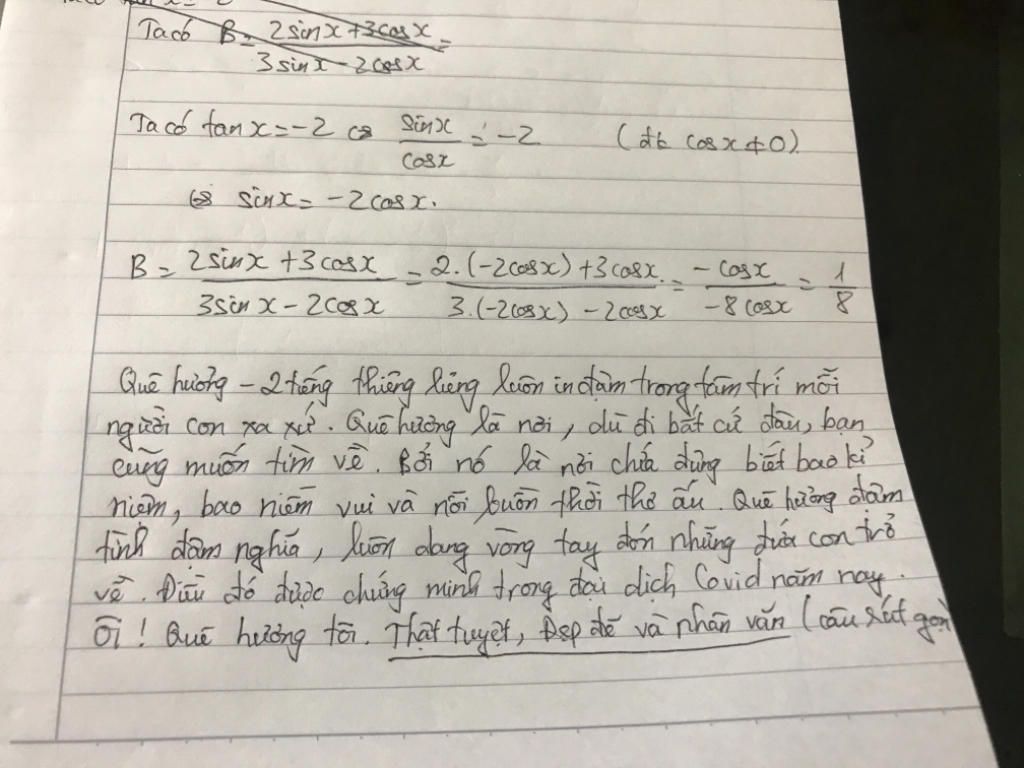 Ta có B = (2sinx + 3cosx)/(3sinx - 2cosx) =
Ta có tan x = -2 ⇔ sinx/cosx = -2 (đk cosx ≠ 0).
⇔ sinx = -2cosx.
B = (2sinx + 3cosx)/(3sinx - 2cosx) = (2.(-2cosx) + 3cosx)/(3.(-2cosx) - 2cosx) = (-cosx)/(-8cosx) = 1/8
Quê hương - 2 tiếng thiêng liêng luôn in đậm trong tâm trí mỗi
người con xa xứ. Quê hương là nơi, dù đi bất cứ đâu, bạn
cũng muốn tìm về. Bởi nó là nơi chứa đựng biết bao kỉ
niệm, bao niềm vui và nỗi buồn thời thơ ấu. Quê hương đậm
tình đậm nghĩa, luôn dang vòng tay đón những đứa con trở
về. Điều đó được chứng minh trong đại dịch Covid năm nay.
Ôi! Quê hương tôi. Thật tuyệt, Đẹp đẽ và nhân văn (câu rút gọn